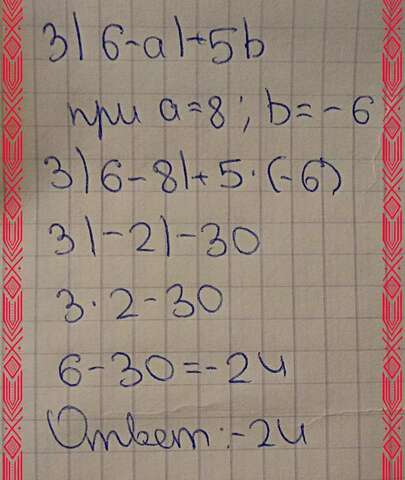 3|6-a|+5b
при a=8; b=-6
3|6-8|+5·(-6)
3|-2|-30
3·2-30
6-30=-24
Ответ:-24